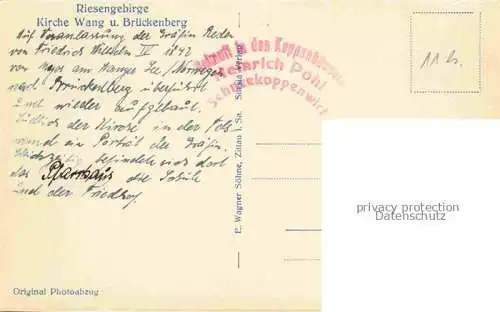 Riesengebirge
Kirche Wang u. Brückenberg
Auf Veranlassung der Gräfin Reden
von Friedrich Wilhelm IV 1842
von am Wanger See / Norwegen
nach Brückenberg überführt
und wieder aufgebaut.
Südlich der Kirche in der Fels
wand ein Porträt der Gräfin.
Gleichzeitig befindet sich dort
das Pfarrhaus die Schule
und der Friedhof.
Original Photoabzug
E. Wagner Söhne, Zittau i. Sa.
in den Koppenhäusern
Heinrich Pohl
Schneekoppenwirt
privater Vermerk
Datenschutz